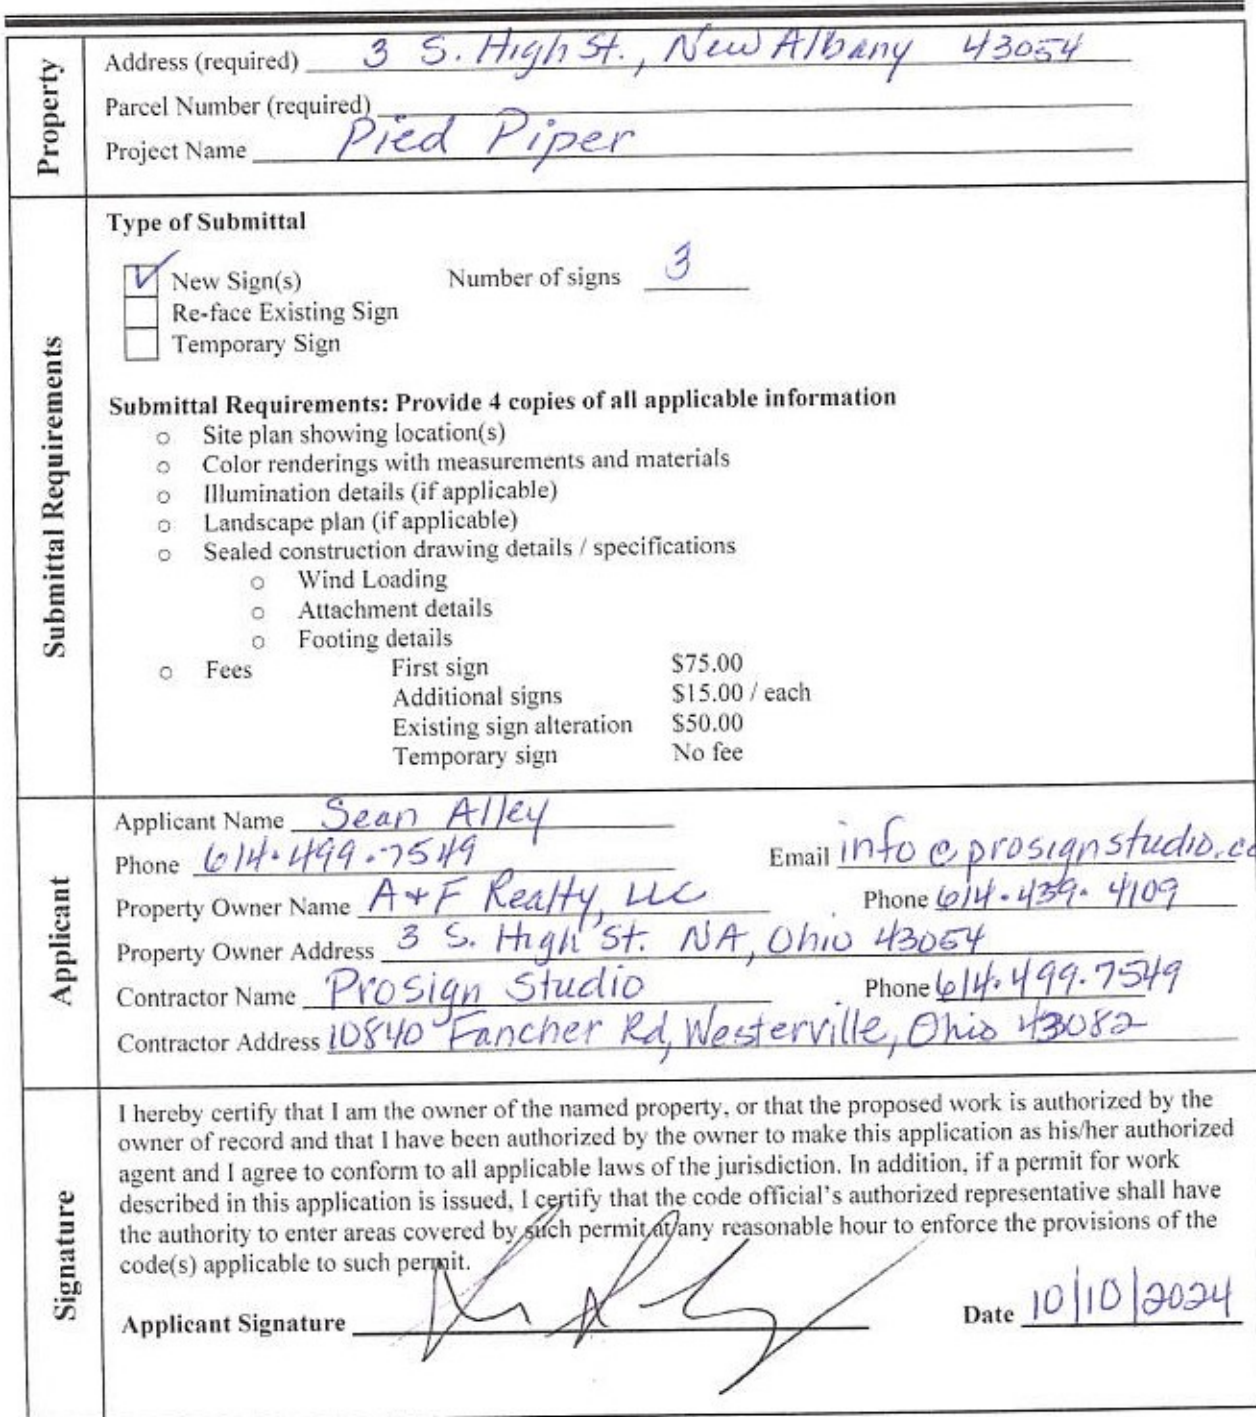 Property
Address (required) 3 S. High St., New Albany 43054
Parcel Number (required)
Project Name Pied Piper
Submittal Requirements
Type of Submittal
New Sign(s) Number of signs 3
Re-face Existing Sign
Temporary Sign
Submittal Requirements: Provide 4 copies of all applicable information
Site plan showing location(s)
Color renderings with measurements and materials
Illumination details (if applicable)
Landscape plan (if applicable)
Sealed construction drawing details / specifications
Wind Loading
Attachment details
Footing details
Fees First sign $75.00
Additional signs $15.00 / each
Existing sign alteration $50.00
Temporary sign No fee
Applicant
Applicant Name Sean Alley
Phone 614.499.7549 Email info@prosignstudio.co
Property Owner Name A+F Realty, LLC Phone 614.439.4109
Property Owner Address 3 S. High St. NA, Ohio 43054
Contractor Name Prosign Studio Phone 614.499.7549
Contractor Address 10840 Fancher Rd, Westerville, Ohio 43082
Signature
I hereby certify that I am the owner of the named property, or that the proposed work is authorized by the
owner of record and that I have been authorized by the owner to make this application as his/her authorized
agent and I agree to conform to all applicable laws of the jurisdiction. In addition, if a permit for work
described in this application is issued, I certify that the code official's authorized representative shall have
the authority to enter areas covered by such permit at any reasonable hour to enforce the provisions of the
code(s) applicable to such permit.
Applicant Signature Date 10/10/2024